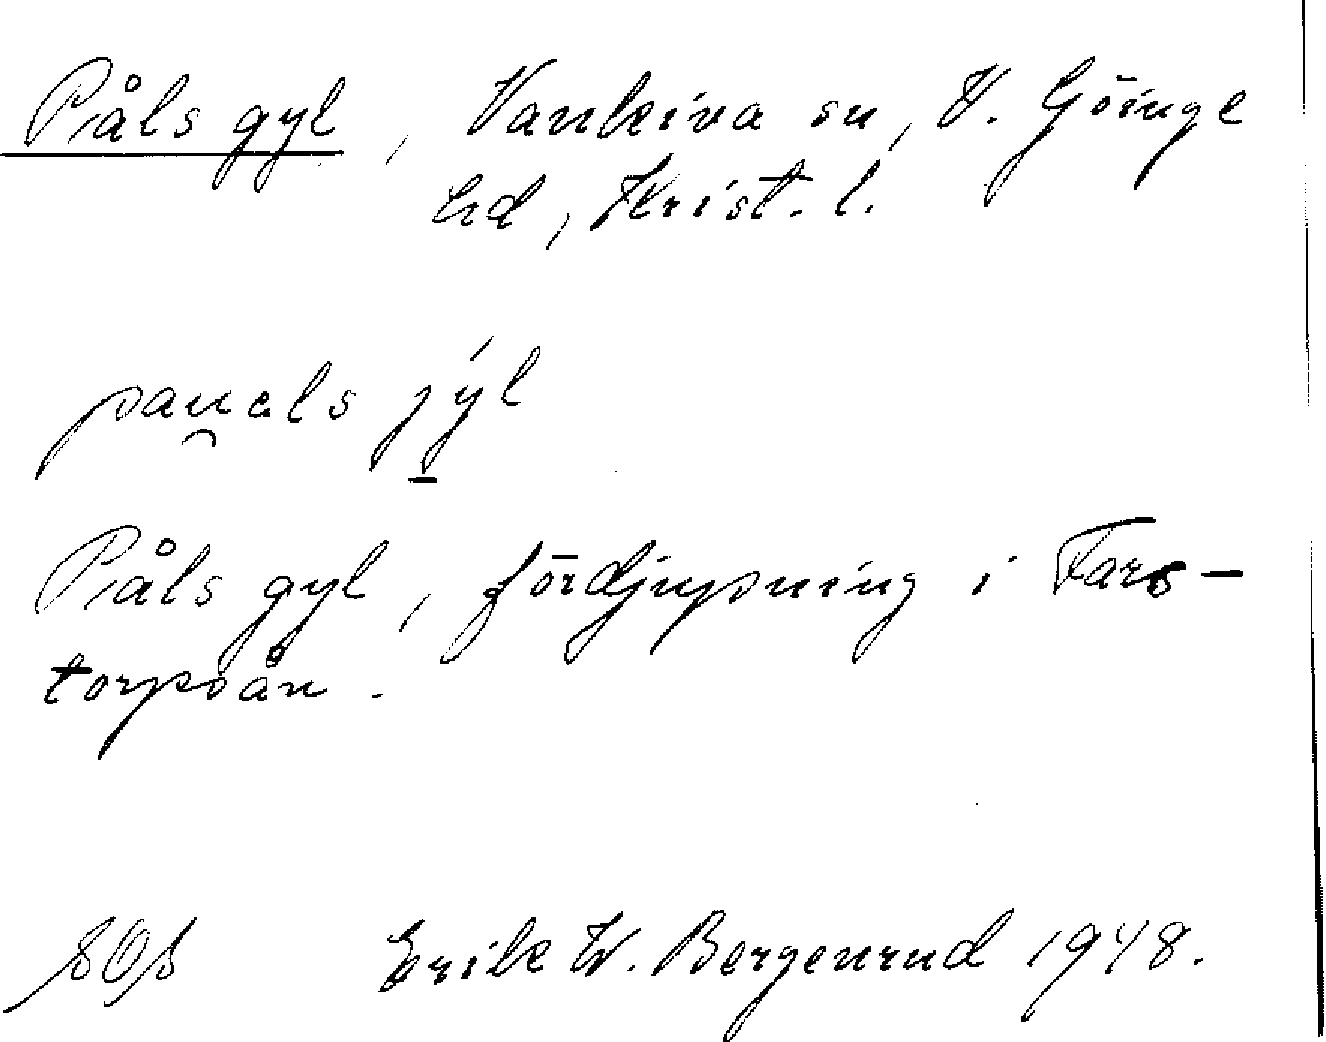 Påls gyl, Vankiva sn, V. Göinge
hd, Krist. l.
pauals jýl
Påls gyl, fördjupning i Fars-
torpsån.
SOS Erik W. Bergenrud 1948.